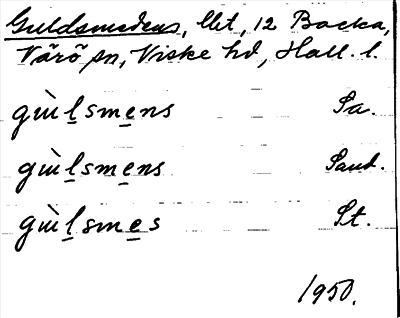 Guldsmedens, lht, 12 Backa,
Värö sn, Viske hd, Hall. l.
gùlsmens Sa.
gùlsmens Sand.
gùlsmes St.
1950.